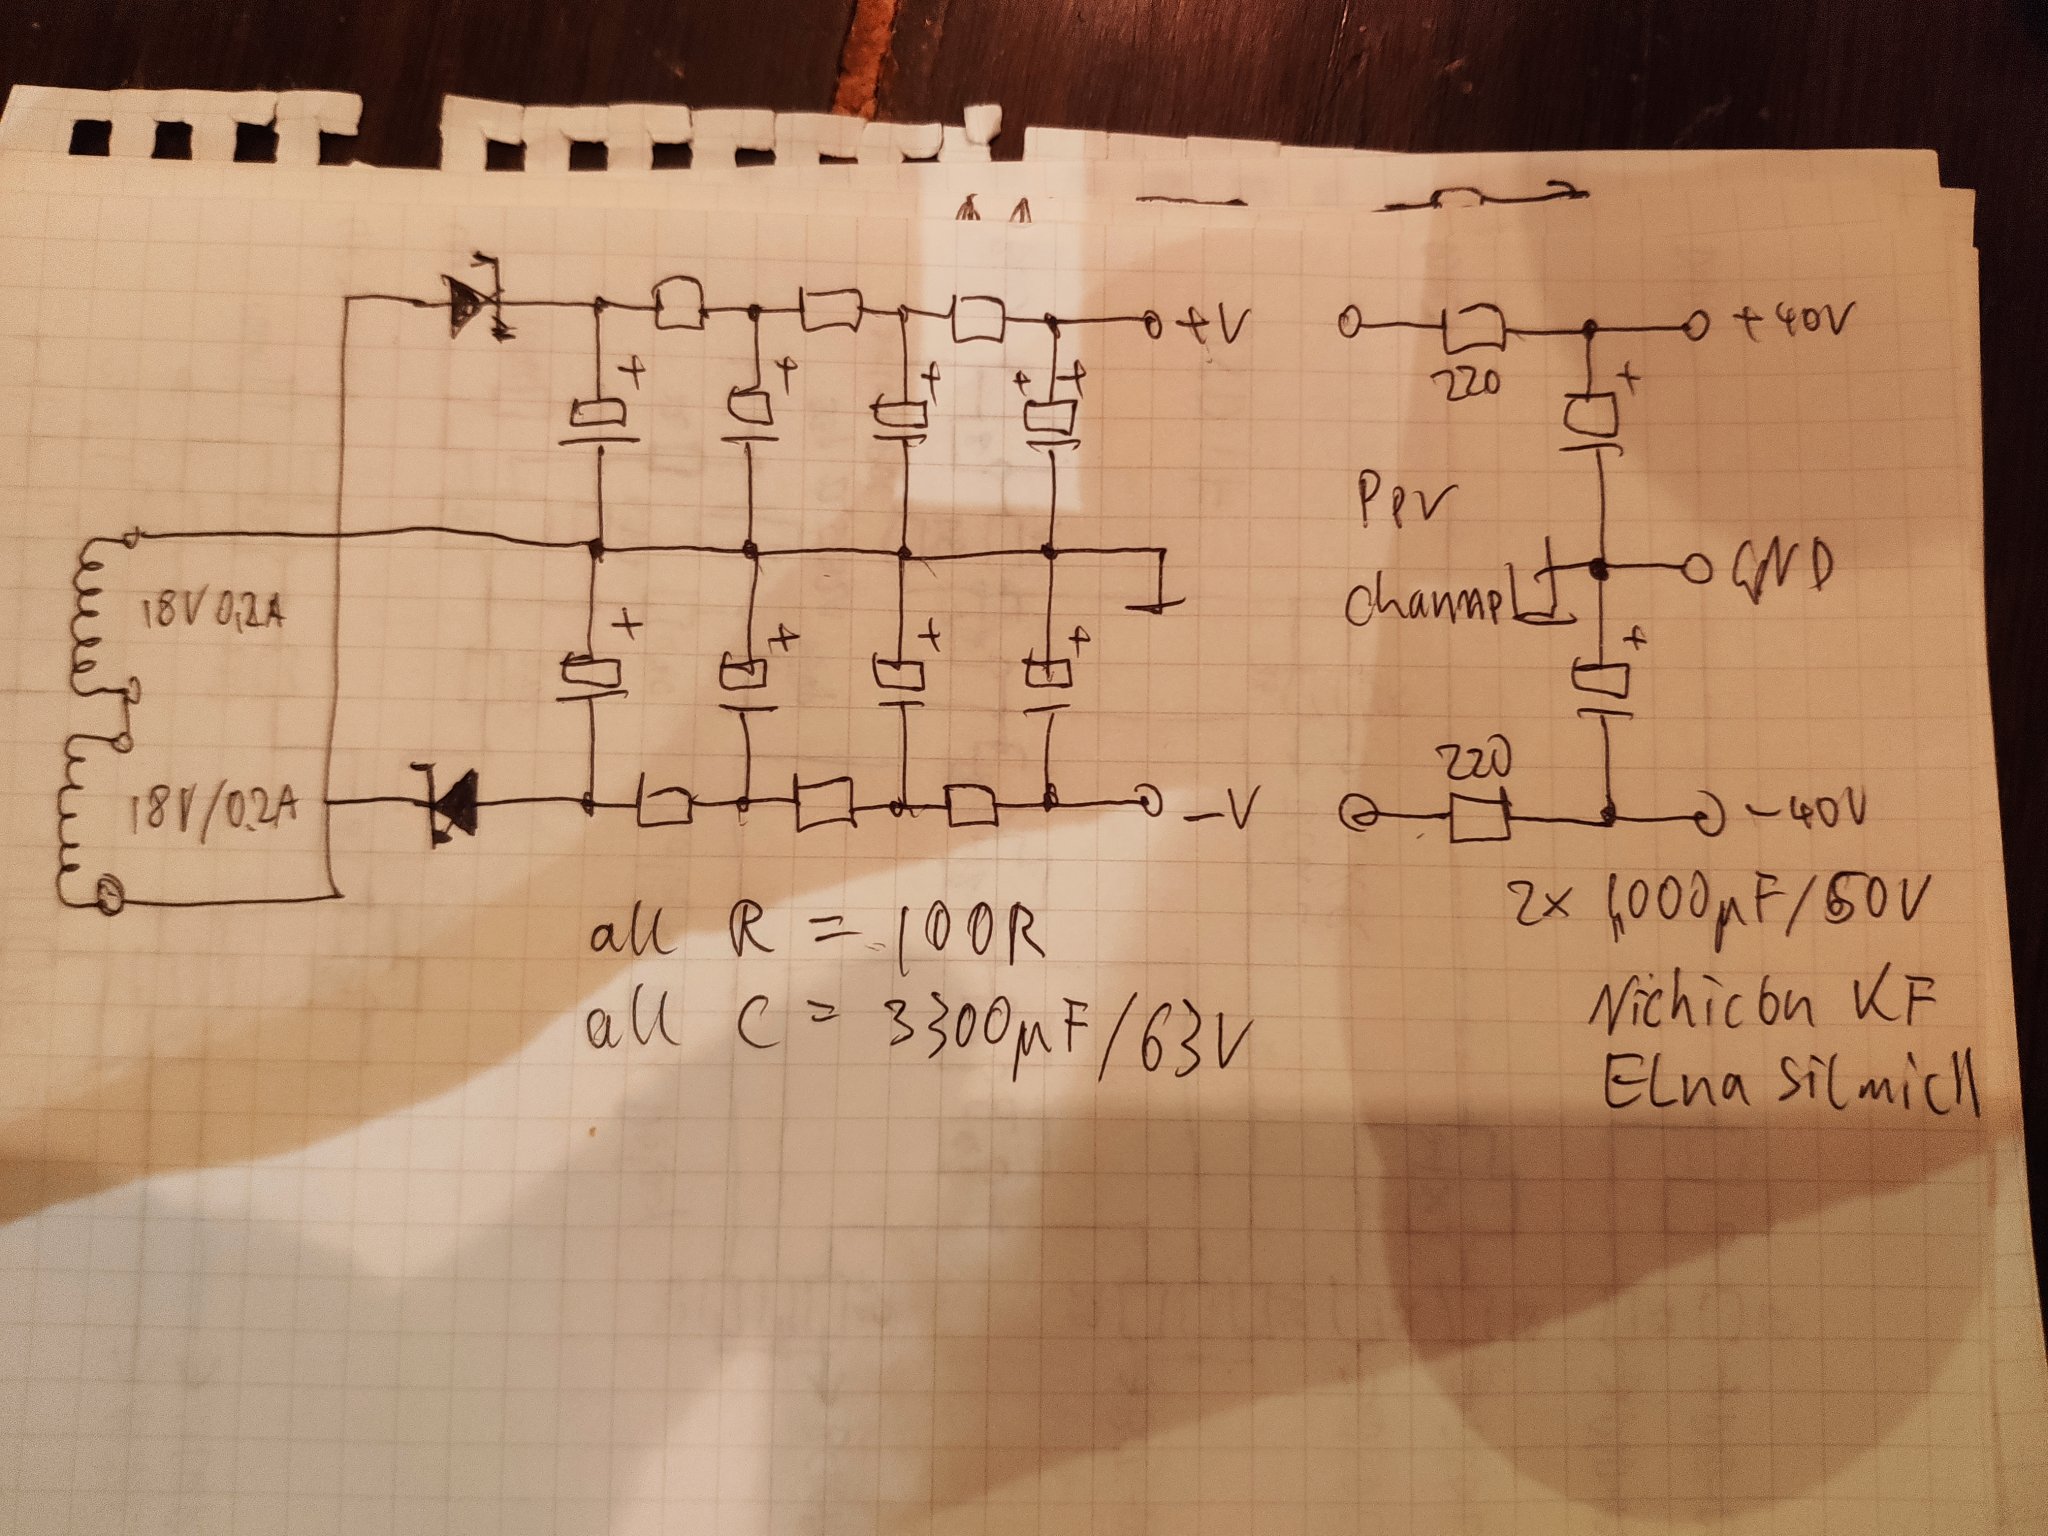 + + + + +
+V
+
+40V
220
18V 0,2A
+ + + +
Per
channel
GND
+
18V/0.2A
-V
220
-40V
all R = 100R
all C = 3300µF/63V
2x 1,000µF/50V
Nichicon KF
Elna Silmic II